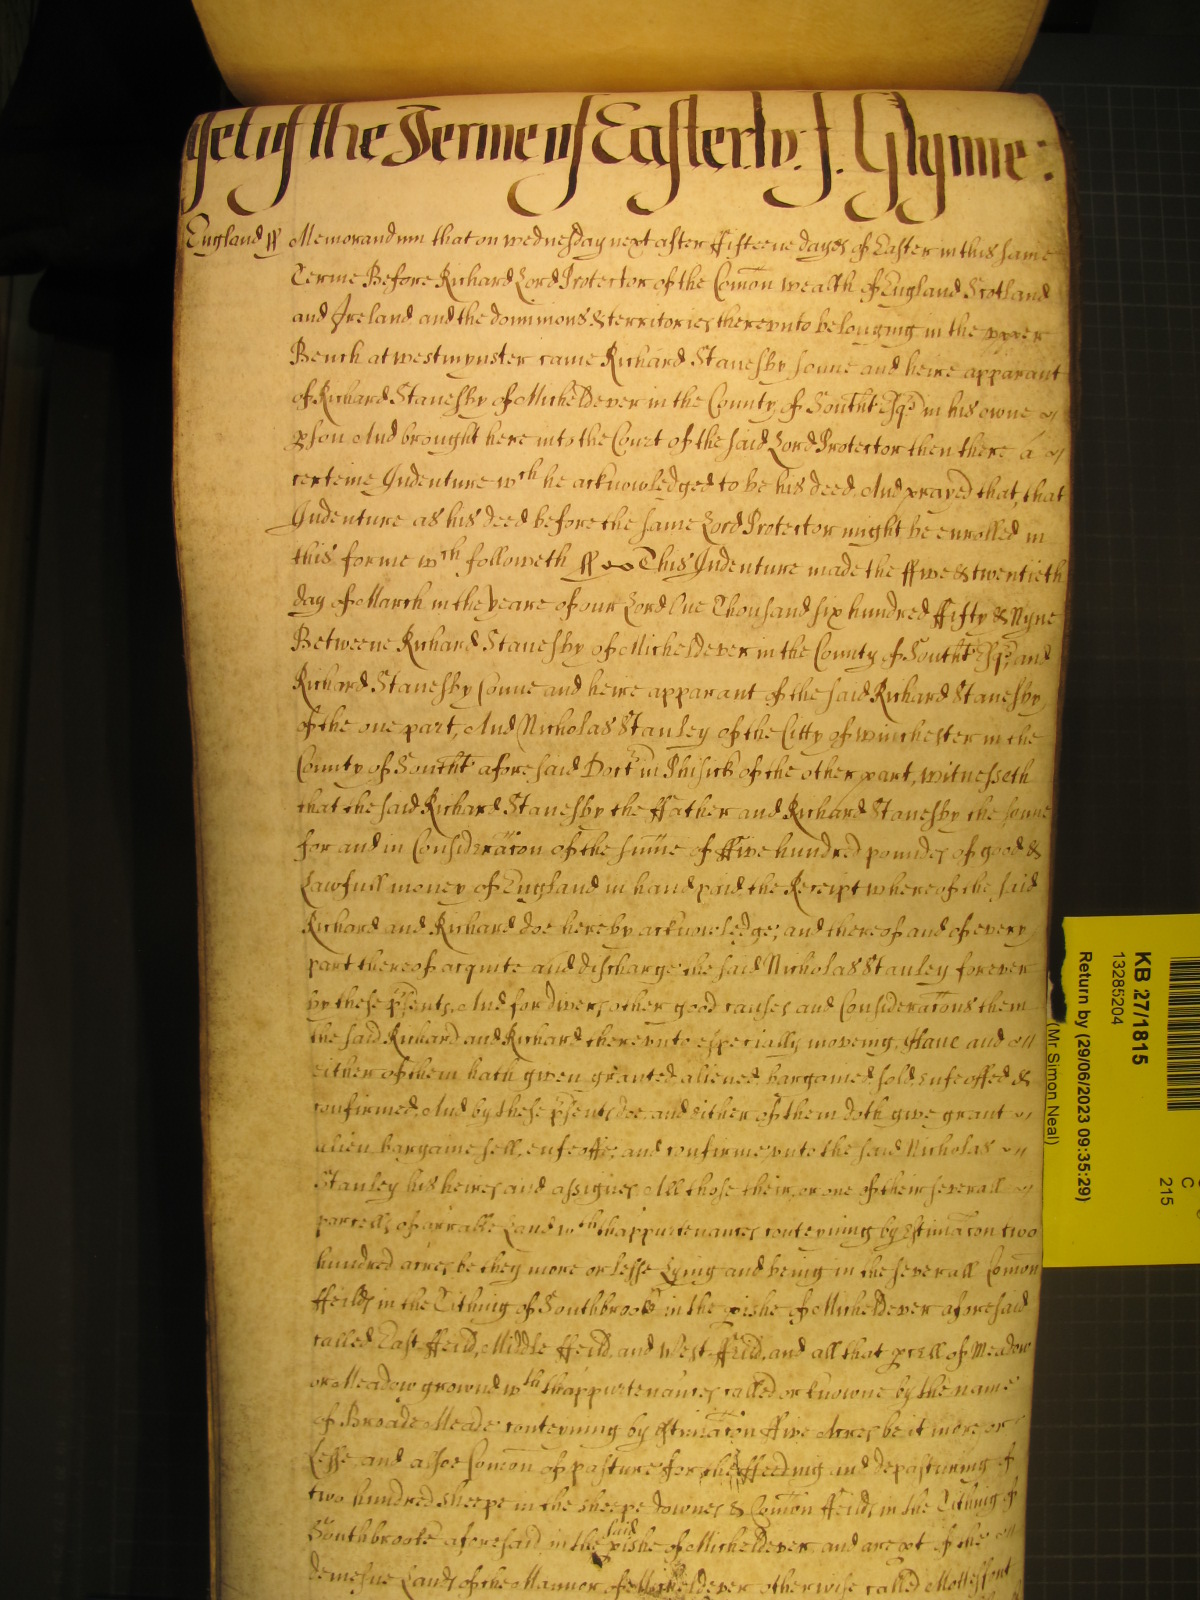 yet of the Terme of Easter by. J. Glynne:
England ss Memorandum that on wednesday next after ffifteene dayes of Easter in this same
Terme Before Richard Lord Protector of the Comon wealth of England Scotland
and Ireland and the dominions & territories therevnto belonging in the vpper
Bench at westmynster came Richard Stanesby sonne and heire apparant
of Richard Stanesby of Micheldever in the County of Southt Esqr in his owne
pson And brought here into the Court of the said Lord Protector then there a
certeine Indenture wch he acknowledged to be his deed. And prayed that, that
Indenture as his deed before the same Lord Protector might be enrolled in
this forme wch followeth ss This Indenture made the ffive & twentieth
day of March in the yeare of our Lord One Thousand six hundred ffifty & Nyne
Betweene Richard Stanesby of Micheldever in the County of Southt Esqr and
Richard Stanesby sonne and heire apparant of the said Richard Stanesby
of the one part, And Nicholas Stanley of the Citty of winchester in the
County of Southt aforesaid Doctr in Phisick of the other part, witnesseth
that the said Richard Stanesby the ffather and Richard Stanesby the sonne
for and in Consideracon of the sume of ffive hundred poundes of good &
Lawfull money of England in hand paid the Receipt whereof the said
Richard and Richard doe hereby acknowledge, and thereof and of every
part thereof acquite and discharge the said Nicholas Stanley forever
by these psents, And for divers other good causes and Consideracons them
the said Richard and Richard therevnto especially moveing, Haue and
either of them hath given granted aliened bargained sold enfeoffed &
confirmed, And by these psents doe and either of them doth give grant
alien bargaine sell, enfeoffe, and confirme vnto the said Nicholas
Stanley his heires and assignes All those their, or one of their severall
parcells of arrable Land wth thappurtenances conteyning by Estimacon two
hundred acres be they more or lesse Lying and being in the severall Comon
ffeilds in the Tithing of Southbrooke in the pishe of Micheldever aforesaid
called East ffeild, Middle ffeild, and West ffeild, and all that pcell of Meadow
or Meadow grownd wth thappurtenances called or knowne by the name
of Broade Meade conteyning by Estimacon ffive Acres be it more or
Lesse, and alsoe Comon of pasture for the ffeeding and depasturing of
two hundred sheepe in the sheepe downes & Comon ffeilds in the Tithing of
Southbrooke aforesaid in the said pishe of Micheldever and are pt of the
demesne Lands of the Mannor of Micheldever otherwise called Mottesfont
KB 27/1815
13285204
Return by (29/06/2023 09:35:29)
(Mr Simon Neal)
C
215